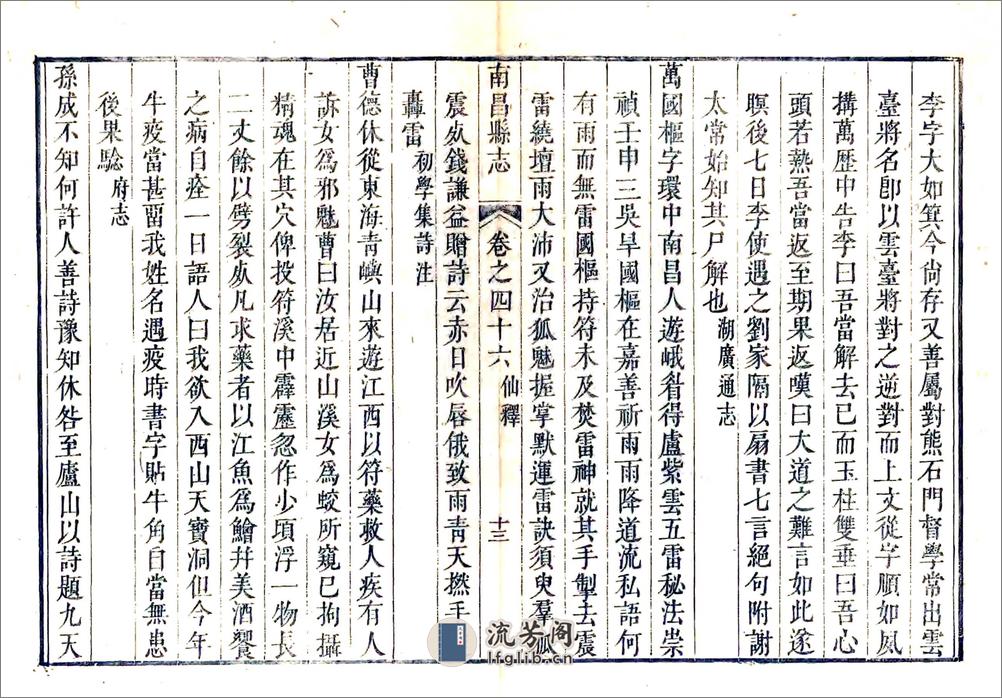 李字大如箕今尙存又善屬對熊石門督學常出雲
臺將名卽以雲臺將對之逆對而上文從字順如風
搆萬歷中告李曰吾當解去已而玉柱雙垂曰吾心
頭若熱吾當返至期果返嘆曰大道之難言如此遂
瞑後七日李使遇之劉家隔以扇書七言絕句附謝
太常始知其尸解也湖廣通志
萬國樞字環中南昌人遊峨眉得盧紫雲五雷秘法崇
禎壬申三吳旱國樞在嘉善祈雨雨降道流私語何
有雨而無雷國樞持符未及焚雷神就其手掣去震
雷繞壇雨大沛又治狐魅握掌默運雷訣須臾羣狐
震死錢謙益贈詩云赤日吹唇俄致雨靑天撚手
轟雷初學集詩注
南昌縣志 卷之四十六 仙釋 十三
曹德休從東海靑嶼山來遊江西以符藥救人疾有人
訴女爲邪魅曹曰汝居近山溪女爲蛟所窺已拘攝
精魂在其穴俾投符溪中霹靂忽作少頃浮一物長
二丈餘以劈裂死凡求藥者以江魚爲鱠幷美酒饗
之病自痊一日語人曰我欲入西山天寶洞但今年
牛疫當甚畱我姓名遇疫時書字貼牛角自當無患
後果驗府志
孫成不知何許人善詩豫知休咎至廬山以詩題九天
流芳阁
lfglib.cn